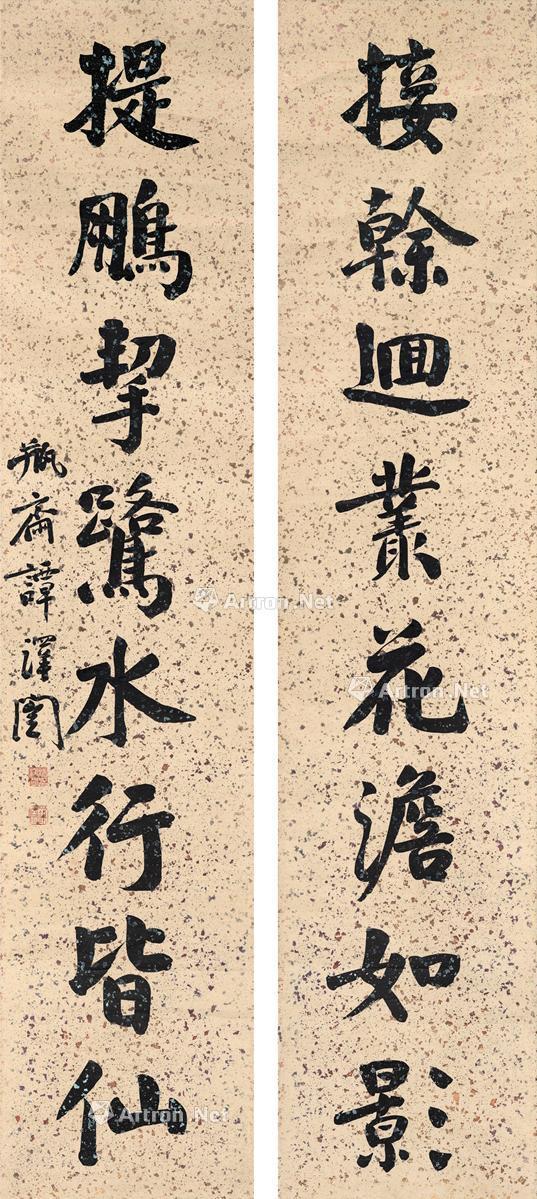 接榦迴叢花澹如影
提鵬挈鷺水行皆仙
瓶齋譚澤闓
Artron.Net
Artron.Net
Artron.Net
Artron.Net